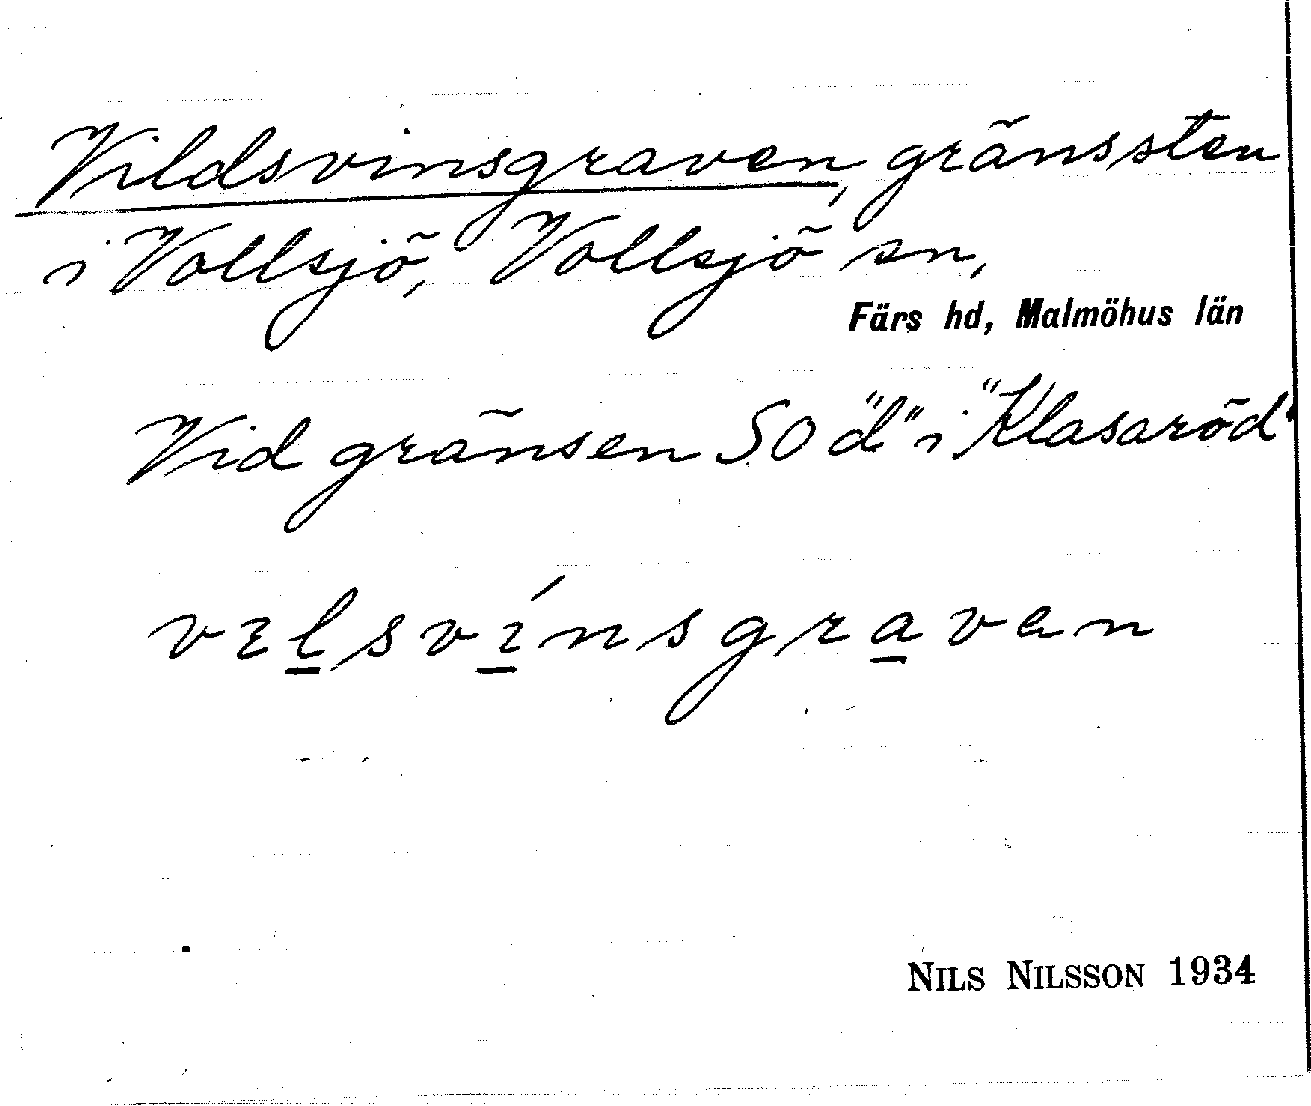 Vildsvinsgraven, gränssten
i Vollsjö, Vollsjö sn,
Färs hd, Malmöhus län
Vid gränsen SO "d" i "Klasaröd"
vɪlsvínsgravan
NILS NILSSON 1934